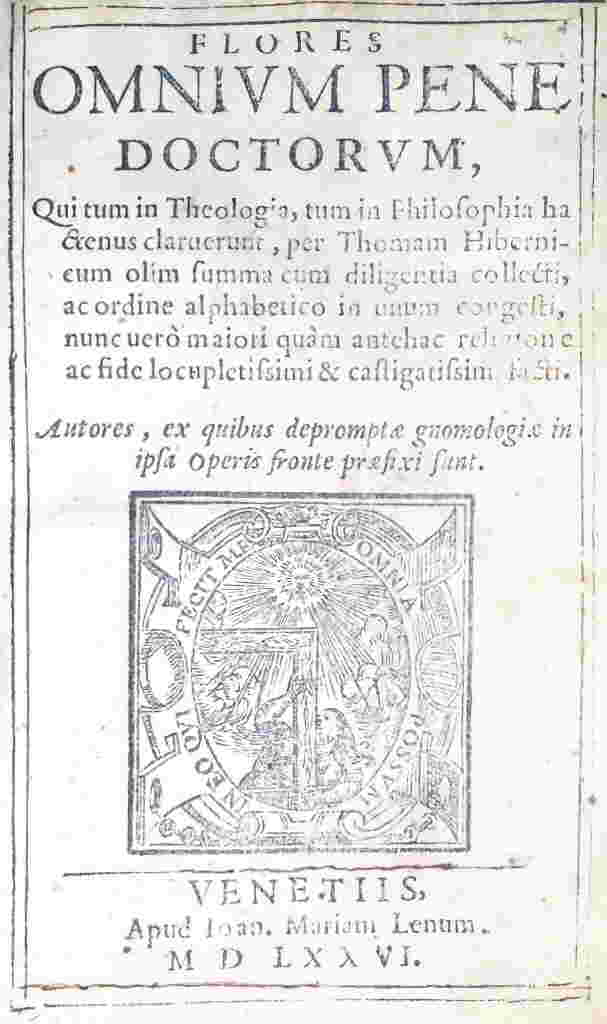 FLORES
OMNIVM PENE
DOCTORVM,
Qui tum in Theologia, tum in Philosophia ha
ctenus claruerunt, per Thomam Hiberni-
cum olim summa cum diligentia collecti,
ac ordine alphabetico in unum congesti,
nunc uerò maiori quàm antehac religione
ac fide locupletissimi & castigatissimi facti.
Autores, ex quibus depromptæ gnomologiæ in
ipsa Operis fronte præfixi sunt.
OMNIA
POSSVM
IN EO QVI
FECIT ME
VENETIIS,
Apud Ioan. Mariam Lenum.
M D LXXVI.